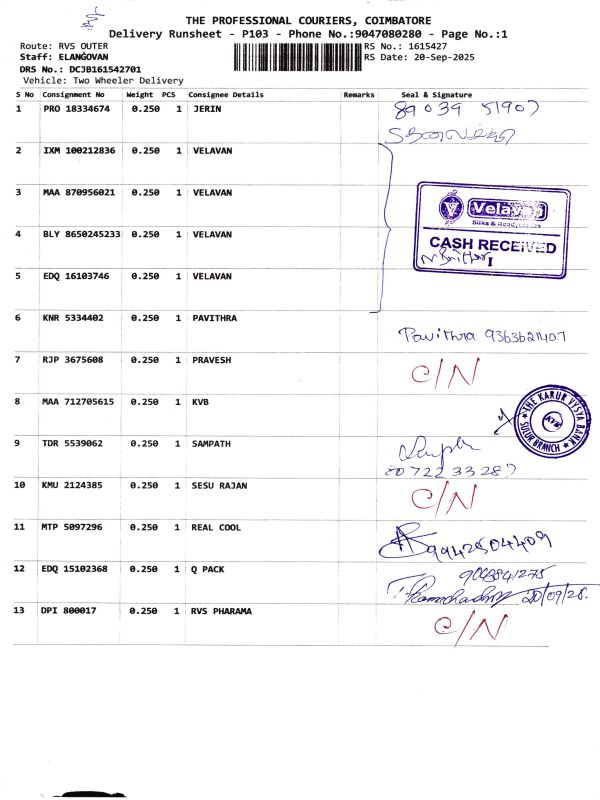 THE PROFESSIONAL COURIERS, COIMBATORE
Delivery Runsheet - P103 - Phone No.:9047080280 - Page No.:1
Route: RVS OUTER
RS No.: 1615427
Staff: ELANGOVAN
RS Date: 20-Sep-2025
DRS No.: DCJB161542701
Vehicle: Two Wheeler Delivery
S No Consignment No Weight PCS Consignee Details Remarks Seal & Signature
1 PRO 18334674 0.250 1 JERIN
2 IXM 100212836 0.250 1 VELAVAN
3 MAA 870956021 0.250 1 VELAVAN
Velavan
Silks & Readymades
4 BLY 8650245233 0.250 1 VELAVAN
CASH RECEIVED
I
5 EDQ 16103746 0.250 1 VELAVAN
6 KNR 5334402 0.250 1 PAVITHRA
Pavithra 9363621407
7 RJP 3675608 0.250 1 PRAVESH C/N
8 MAA 712705615 0.250 1 KVB
THE KARUR VYSYA BANK
SULUR BRANCH
9 TDR 5539062 0.250 1 SAMPATH
10 KMU 2124385 0.250 1 SESU RAJAN C/N
11 MTP 5097296 0.250 1 REAL COOL
9942504409
12 EDQ 15102368 0.250 1 Q PACK
13 DPI 800017 0.250 1 RVS PHARAMA C/N